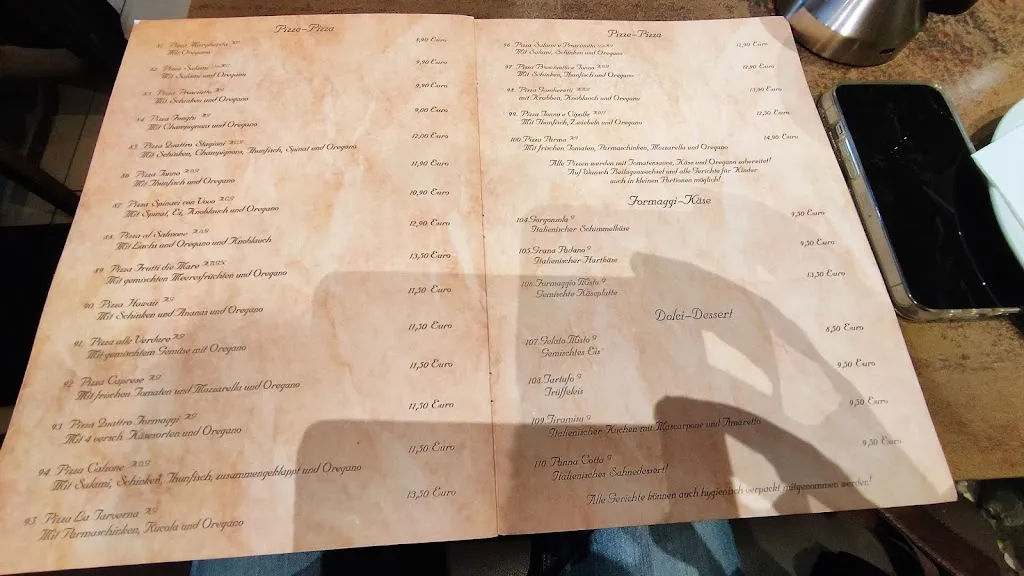 Pizze-Pizza
81. Pizza Margherita
Mit Oregano
8,90 Euro
82. Pizza Salami
Mit Salami und Oregano
9,90 Euro
83. Pizza Prosciutto
Mit Schinken und Oregano
9,90 Euro
84. Pizza Funghi
Mit Champignons und Oregano
9,00 Euro
85. Pizza Quattro Stagioni
Mit Schinken, Champignons, Thunfisch, Spinat und Oregano
12,00 Euro
86. Pizza Tonno
Mit Thunfisch und Oregano
11,90 Euro
87. Pizza Spinaci con Vovo
Mit Spinat, Ei, Knoblauch und Oregano
10,90 Euro
88. Pizza al Salmone
Mit Lachs und Oregano und Knoblauch
12,90 Euro
89. Pizza Frutti die Mare
Mit gemischten Meeresfrüchten und Oregano
13,50 Euro
90. Pizza Hawaii
Mit Schinken und Ananas und Oregano
11,50 Euro
91. Pizza alle Verdura
Mit gemischtem Gemüse mit Oregano
11,50 Euro
92. Pizza Caprese
Mit frischen Tomaten und Mozzarella und Oregano
11,50 Euro
93. Pizza Quattro Formaggi
Mit 4 versch. Käsesorten und Oregano
11,50 Euro
94. Pizza Calzone
Mit Salami, Schinken, Thunfisch, zusammengeklappt und Oregano
11,50 Euro
95. Pizza La Taverna
Mit Parmaschinken, Rucola und Oregano
13,50 Euro
Pizze-Pizza
96. Pizza Salami e Prosciutto
Mit Salami, Schinken und Oregano
12,90 Euro
97. Pizza Prosciutto e Tonno
Mit Schinken, Thunfisch und Oregano
12,90 Euro
98. Pizza Gamberetti
mit Krabben, Knoblauch und Oregano
13,90 Euro
99. Pizza Tonno e Cipolle
Mit Thunfisch, Zwiebeln und Oregano
12,50 Euro
100. Pizza Parma
Mit frischen Tomaten, Parmaschinken, Mozzarella und Oregano
14,90 Euro
Alle Pizzen werden mit Tomatensauce, Käse und Oregano zubereitet!
Auf Wunsch Beilagenwechsel und alle Gerichte für Kinder
auch in kleinen Portionen möglich!
Formaggi-Käse
104. Gorgonzola
Italienischer Schimmelkäse
9,50 Euro
105. Grana Padano
Italienischer Hartkäse
9,50 Euro
106. Formaggio Misto
Gemischte Käseplatte
13,50 Euro
Dolci-Dessert
107. Gelato Misto
Gemischtes Eis
8,50 Euro
108. Tartufo
Trüffeleis
9,50 Euro
109. Tiramisu
Italienischer Kuchen mit Mascarpone und Amaretto
9,50 Euro
110. Panna Cotta
Italienisches Sahnedessert!
9,50 Euro
Alle Gerichte können auch hygienisch verpackt mitgenommen werden!